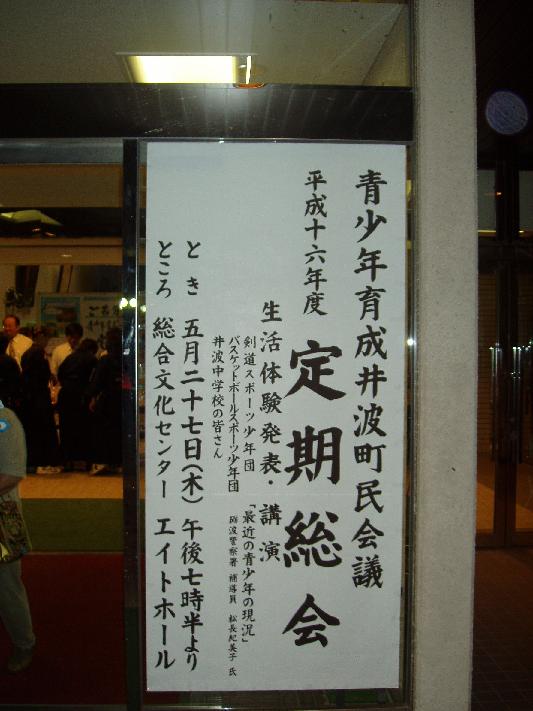 青少年育成井波町民会議
平成十六年度
定期総会
生活体験発表・講演
剣道スポーツ少年団
バスケットボールスポーツ少年団
井波中学校の皆さん
「最近の青少年の現況」
砺波警察署 補導員 松長紀美子 氏
とき 五月二十七日(木)午後七時半より
ところ 総合文化センター エイトホール